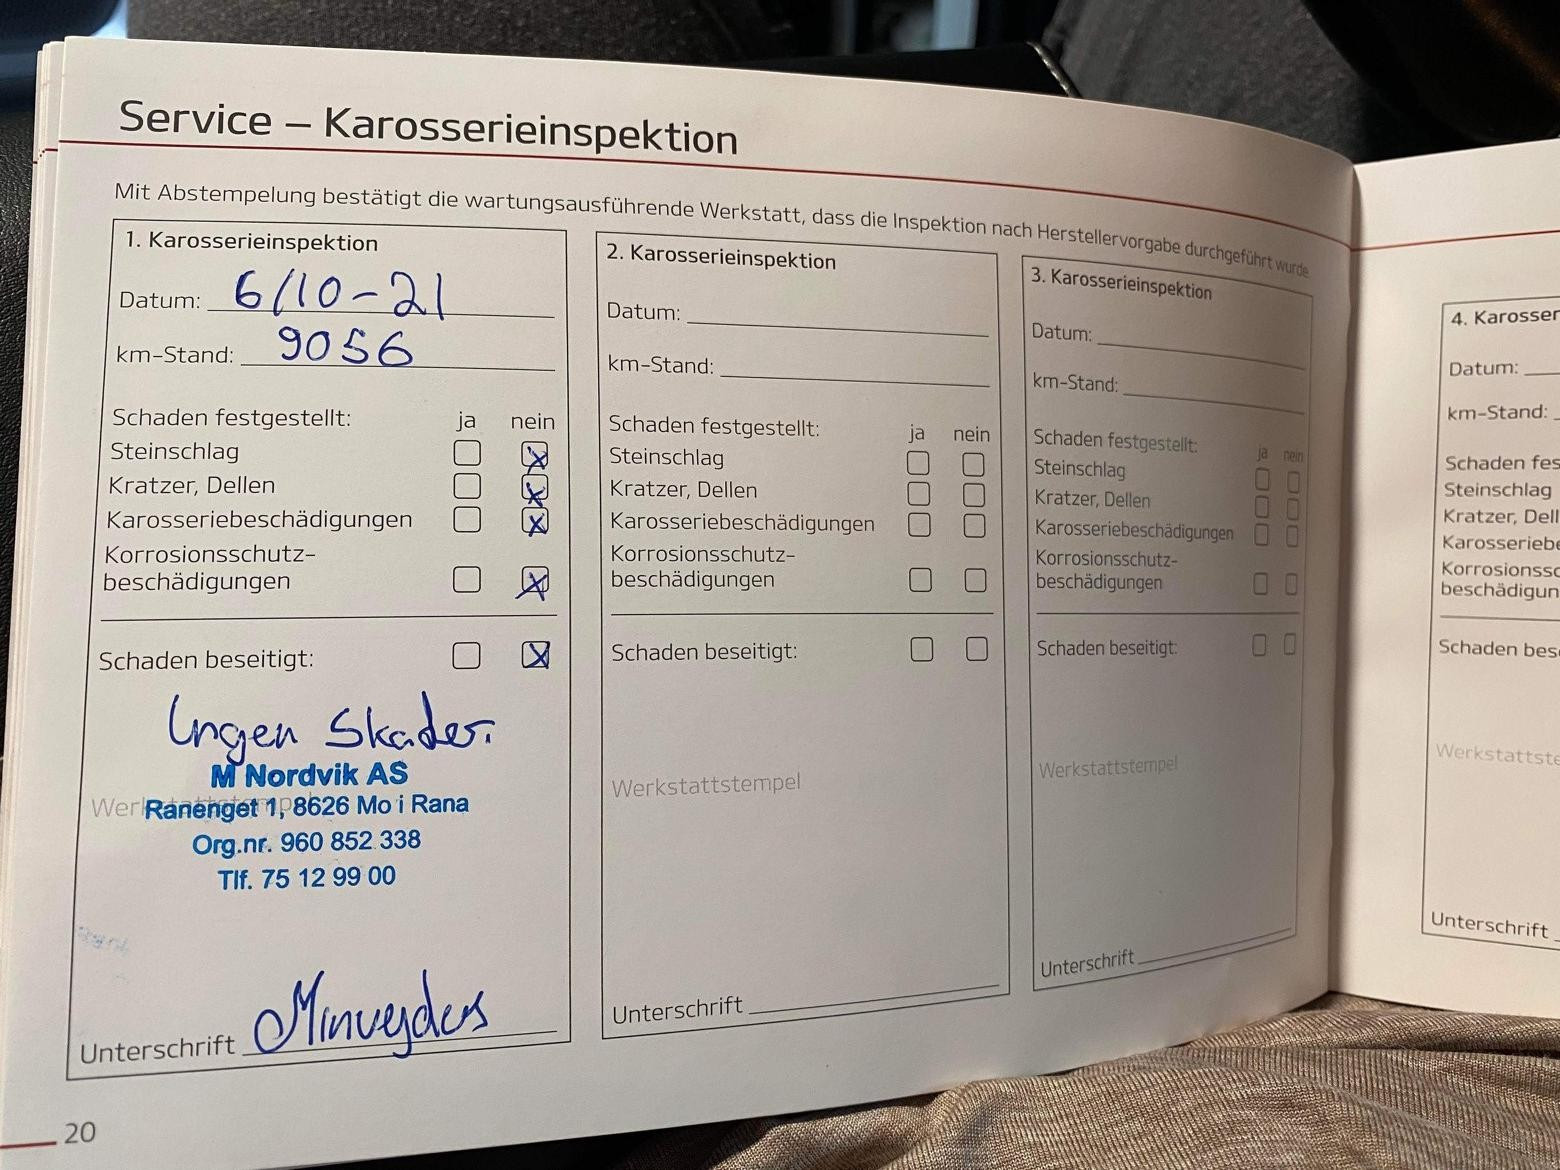 Service – Karosserieinspektion
Mit Abstempelung bestätigt die wartungsausführende Werkstatt, dass die Inspektion nach Herstellervorgabe durchgeführt wurde
1. Karosserieinspektion
Datum: 6/10-21
km-Stand: 9056
Schaden festgestellt: ja nein
Steinschlag
Kratzer, Dellen
Karosseriebeschädigungen
Korrosionsschutz-
beschädigungen
Schaden beseitigt:
Ingen Skader.
M Nordvik AS
Ranenget 1, 8626 Mo i Rana
Org.nr. 960 852 338
Tlf. 75 12 99 00
Unterschrift
2. Karosserieinspektion
Datum:
km-Stand:
Schaden festgestellt: ja nein
Steinschlag
Kratzer, Dellen
Karosseriebeschädigungen
Korrosionsschutz-
beschädigungen
Schaden beseitigt:
Werkstattstempel
Unterschrift
3. Karosserieinspektion
Datum:
km-Stand:
Schaden festgestellt: ja nein
Steinschlag
Kratzer, Dellen
Karosseriebeschädigungen
Korrosionsschutz-
beschädigungen
Schaden beseitigt:
Werkstattstempel
Unterschrift
4. Karosser
Datum:
km-Stand:
Schaden fes
Steinschlag
Kratzer, Dell
Karosseriebe
Korrosionssc
beschädigun
Schaden bes
Werkstattste
Unterschrift
20